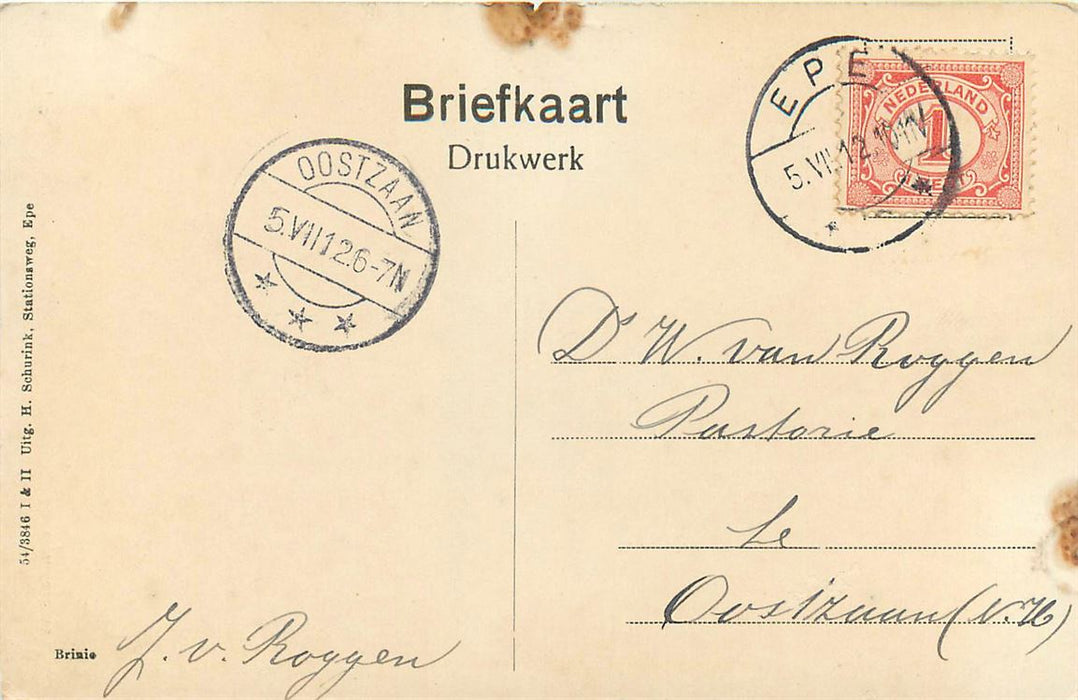 Briefkaart
Drukwerk
EPE
5.VII.12
NEDERLAND
1
CENT
OOSTZAAN
5.VII12 6-7N
Ds W. van Roggen
Pastorie
te
Oostzaan (N.H)
J. v. Roggen
54/3846 I & II Uitg. H. Schurink, Stationsweg, Epe